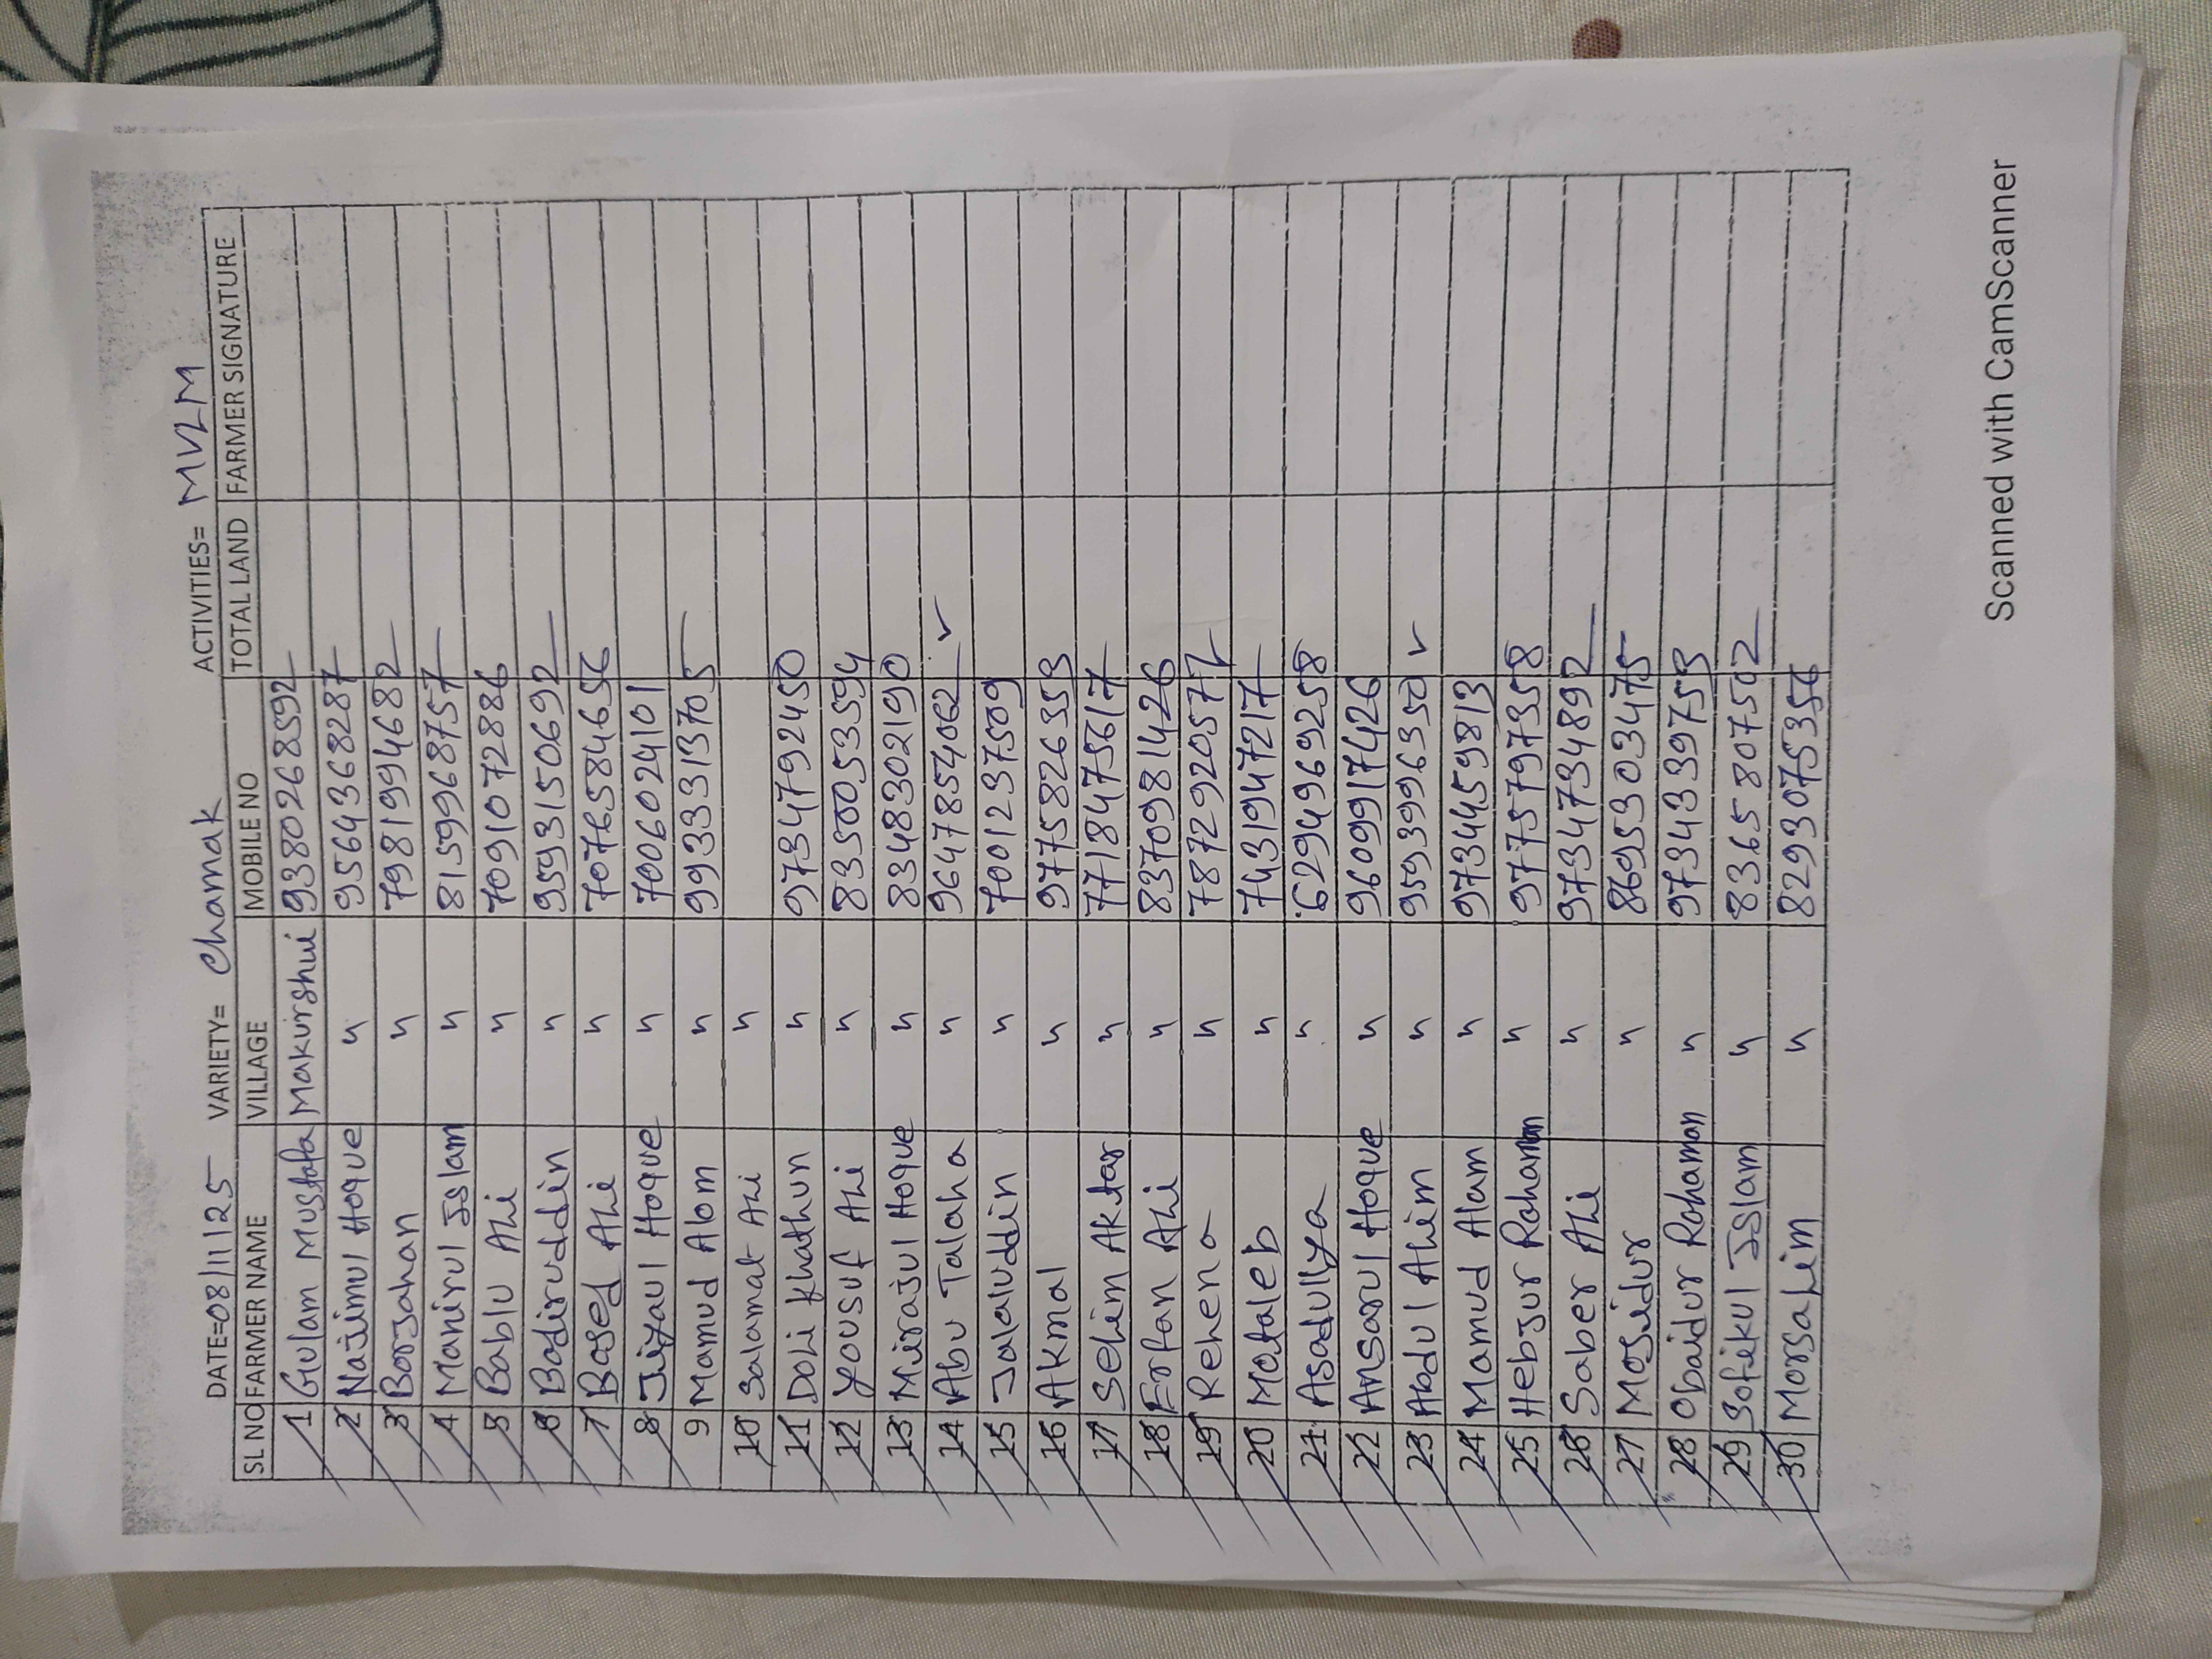 DATE=08/11/25 VARIETY= Chamak ACTIVITIES= MVLM
SL NO FARMER NAME VILLAGE MOBILE NO TOTAL LAND FARMER SIGNATURE
1 Gulam Mustafa Makurshui 9380268592
2 Najimul Hoque " 9564368287
3 Borjahan " 7981994682
4 Manirul Islam " 8159968757
5 Bablu Ali " 7091072886
6 Badiruddin " 9593150692
7 Based Ali " 7076584656
8 Jiyaul Hoque " 7006024101
9 Mamud Alom " 9933313705
10 Salamat Ali "
11 Doli Khathun " 9734792450
12 Yousuf Ali " 8350053594
13 Mirajul Hoque " 8348302190
14 Abu Talaha " 9647854062 ✓
15 Jalaluddin " 7001237509
16 Akmal " 9775826359
17 Selim Aktar " 7718475617
18 Erfan Ali " 8370981426
19 Rehena " 7872920577
20 Motaleb " 7431947217
21 Asadullya " 6294969258
22 Ansarul Hoque " 9609917426
23 Abdul Alim " 9593996350 ✓
24 Mamud Alam " 9734459813
25 Hebjur Rohaman " 9775797358
26 Saber Ali " 9734734892
27 Mosidur " 8695303475
28 Obaidur Rohaman " 9734339753
29 Sofikul Islam " 8365807502
30 Morsalim " 8293075356
Scanned with CamScanner